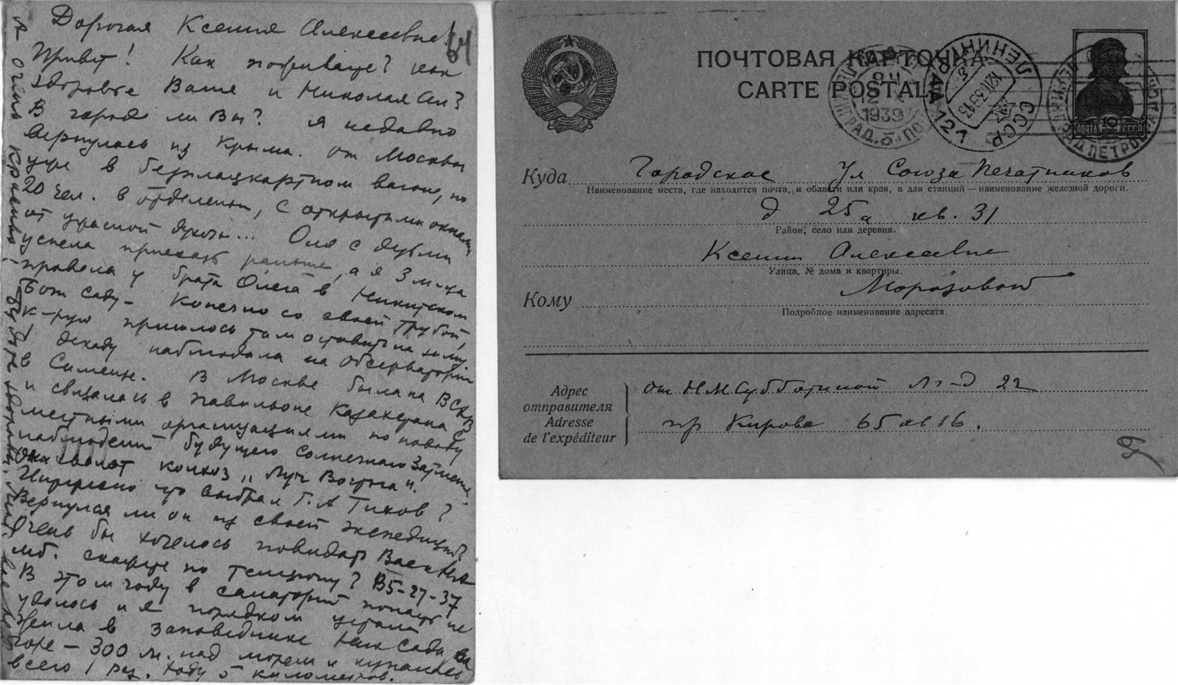 64
Дорогая Ксения Алексеевна
Привет! Как поживаете? как
здоровье Ваше и Николая Ал?
В городе ли Вы? Я недавно
вернулась из Крыма. от Москвы
в бесплацкартном вагоне, по
20 чел. в отделении, с открытыми окнами
от ужасной духоты... Оля с
успела приехать раньше, а я 3 м-ца
провела у брата Олега в Никитском
Бот саду - Конечно со своей трубой,
к-рую пришлось там оставить на зиму.
декаду наблюдала на обсерватории
в Симеизе. В Москве была на ВСХВ
и связалась в павильоне Казахстана с
местными организациями по поводу
наблюдений будущего солнечного затмения
колхоз „Луч Востока".
Интересно что выбрал Г. А Тихов?
Вернулся ли он из своей экспедиции?
Очень бы хотелось повидать Вас
мб. скажете по телефону? В5-27-37
В этом году в санаторий попасть не
удалось и я порядком устала
жила в заповеднике Ник Сада на
горе - 300 м. над морем и купалась
всего 1 раз. ходу 5 километров.
ПОЧТОВАЯ КАРТОЧКА
CARTE POSTALE
ЛЕНИНГРАД 121
СССР
1939
ПОЧТА СССР
Куда Городское Ул Союза Печатников
Наименование места, где находится почта, и области или края, а для станций — наименование железной дороги.
д 25а кв. 31
Район, село или деревня.
Ксении Алексеевне
Улица, № дома и квартиры.
Кому Морозовой
Подробное наименование адресата.
Адрес
отправителя
Adresse
de l'expéditeur
от Н.М.Субботиной Л-д 22
пр Кирова 65 кв 16.
65